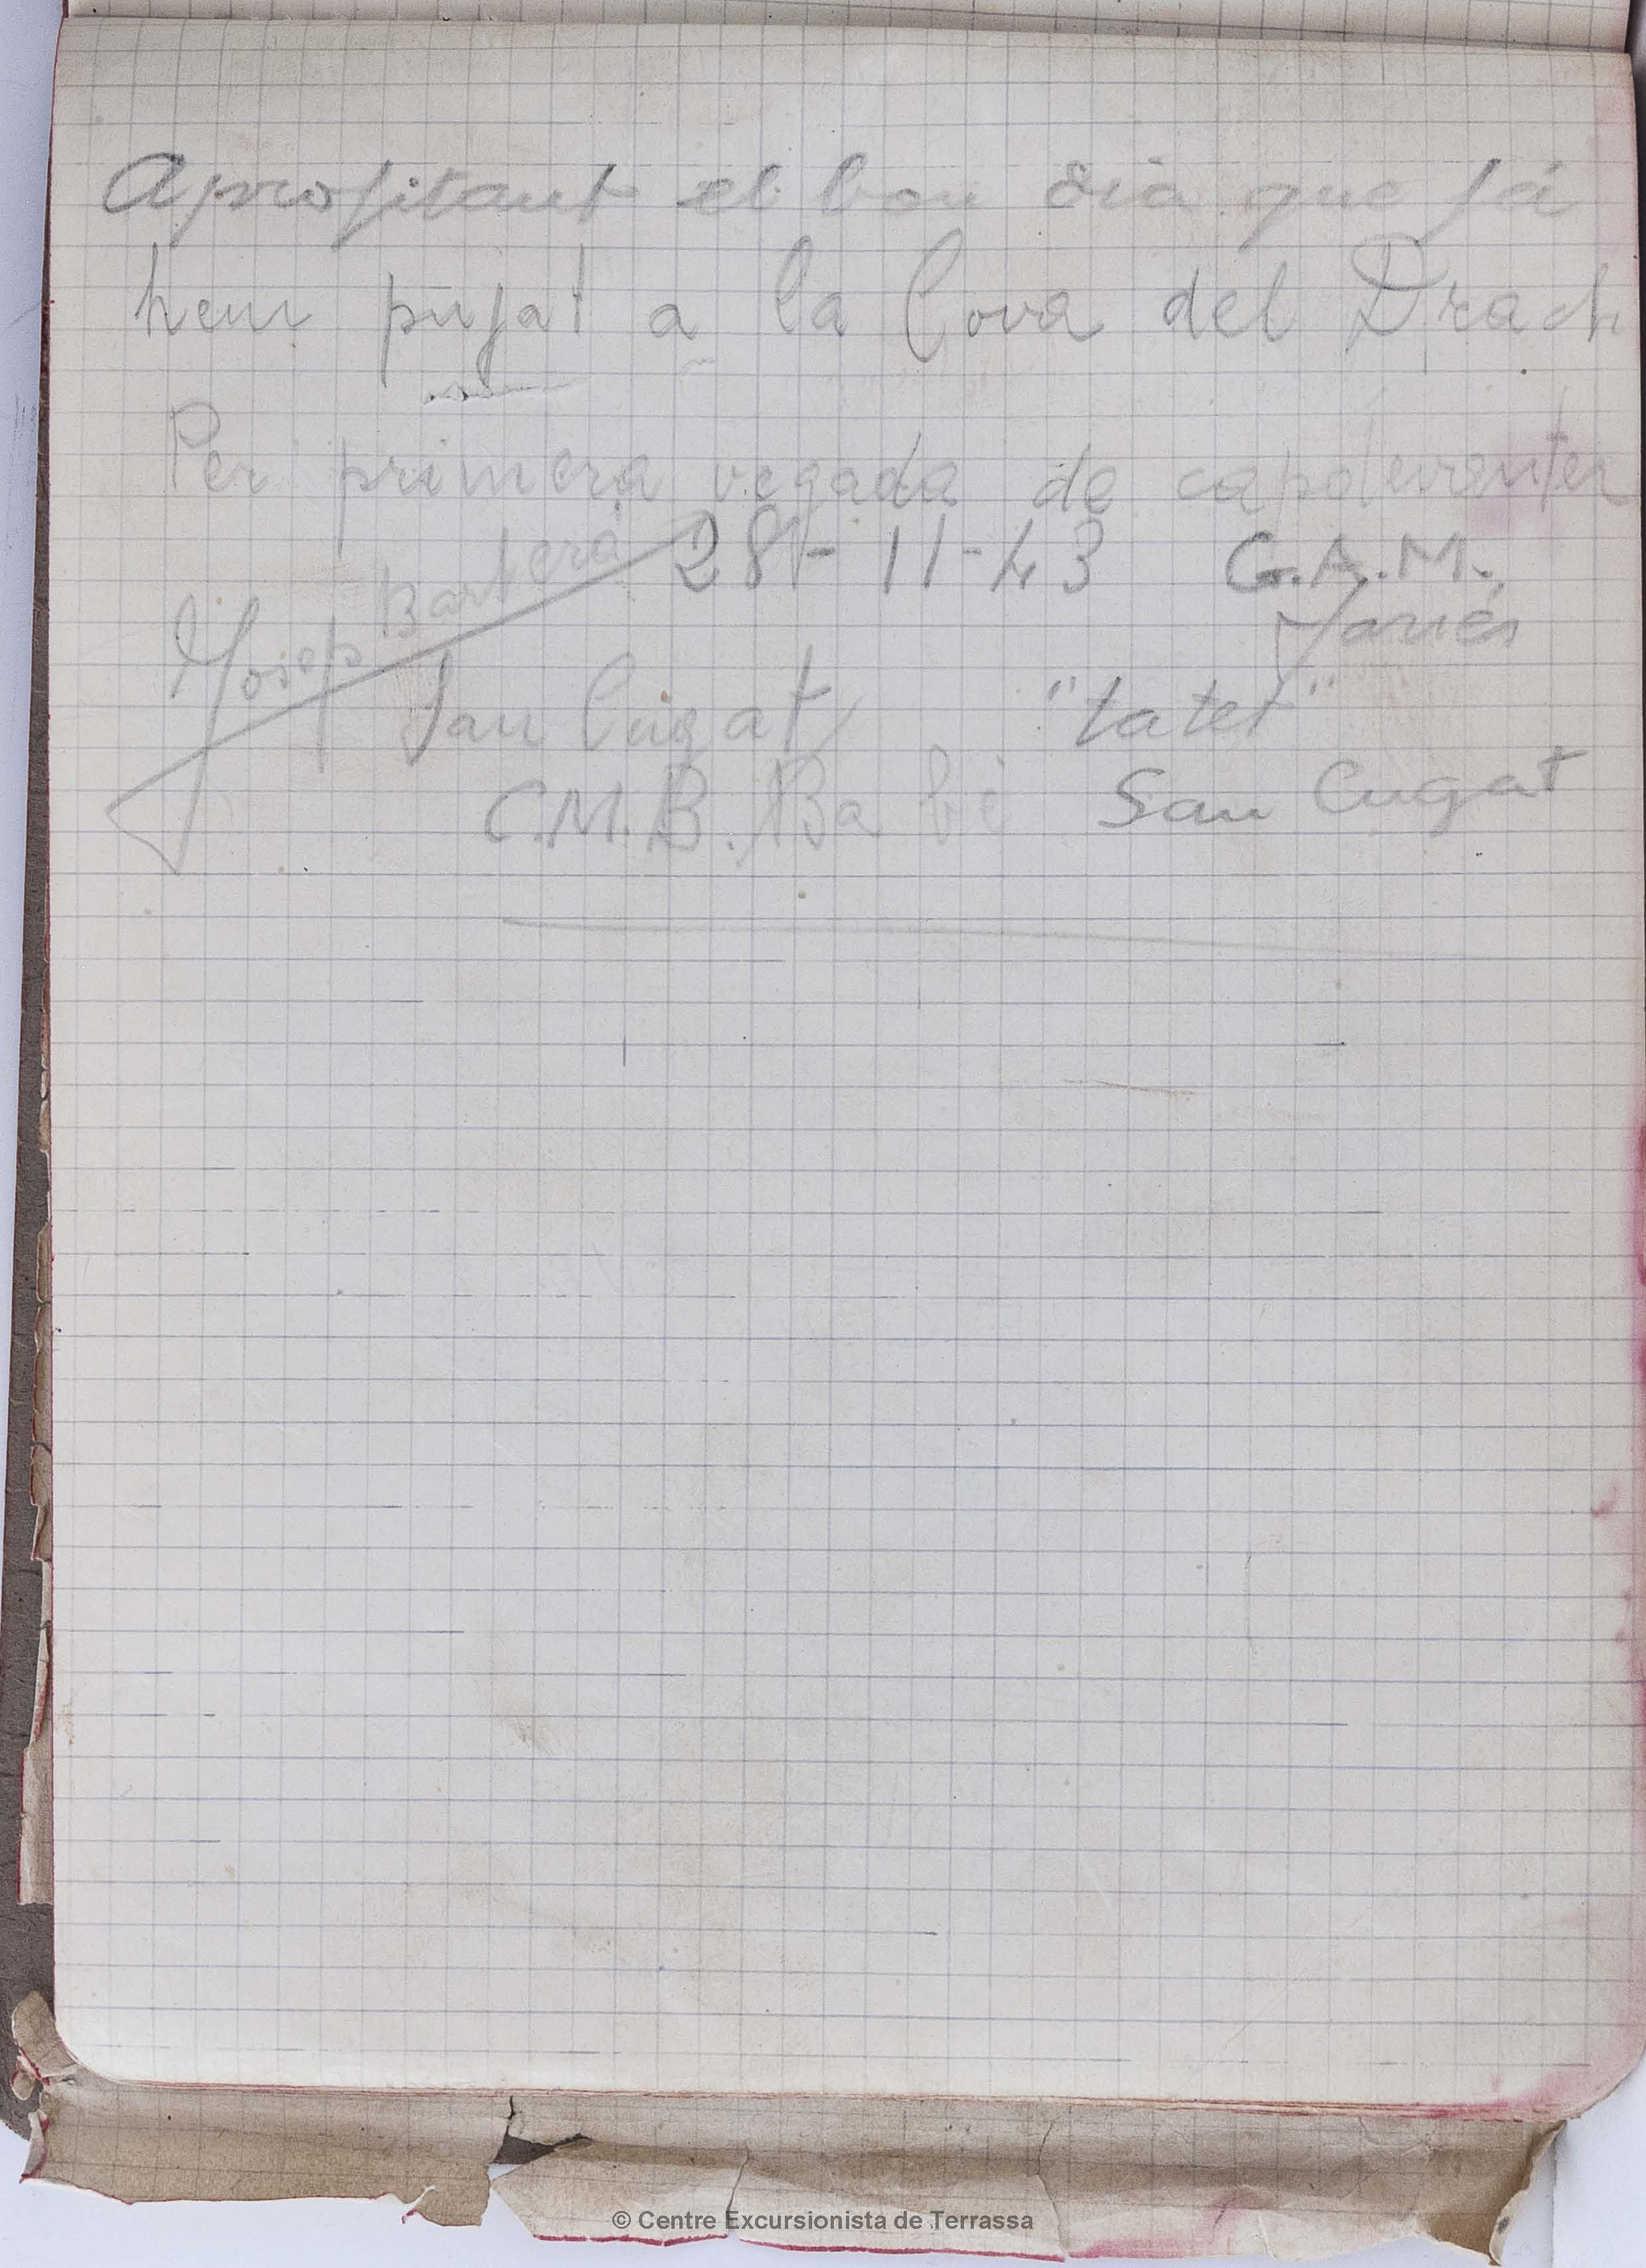 Aprofitant el bon dia que fá
hem pujat a la Cova del Drach
Per primera vegada de capdevanter
Josep Barberá 28-11-43 G.A.M.
San Cugat "tatet"
C.M.B. San Cugat
© Centre Excursionista de Terrassa